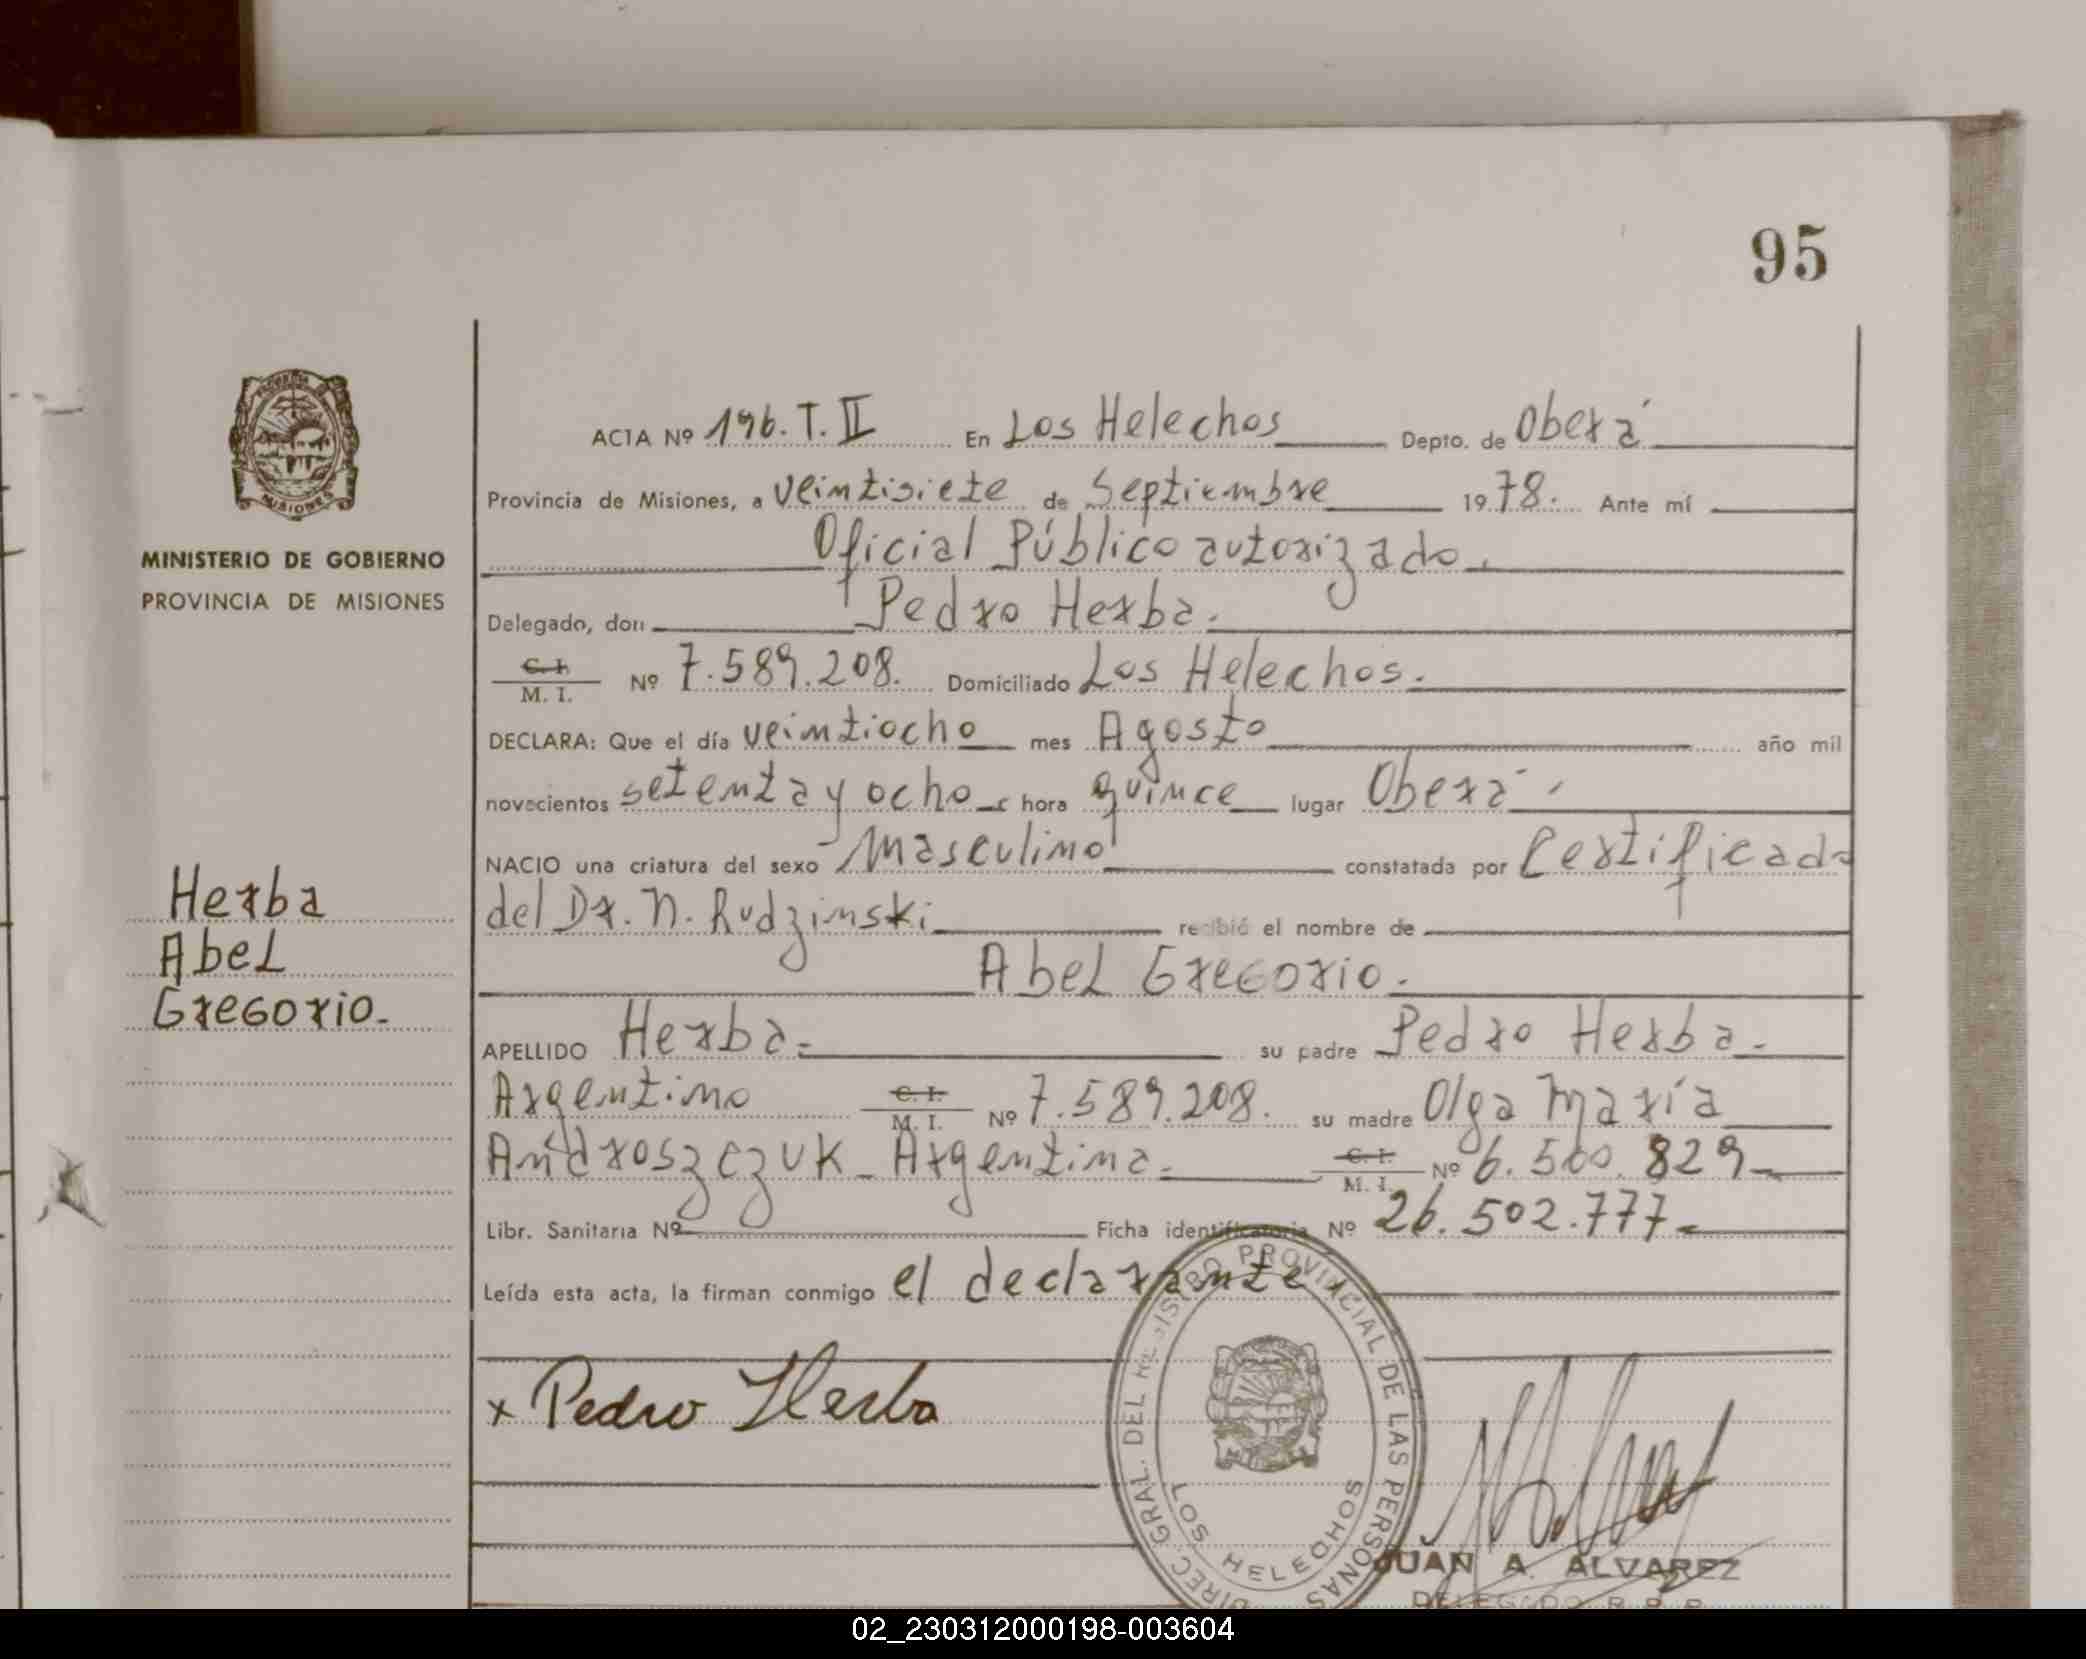 95
MISIONES
MINISTERIO DE GOBIERNO
PROVINCIA DE MISIONES
Herba
Abel
Gregorio.
ACTA Nº 196. T. II En Los Helechos Depto. de Oberá
Provincia de Misiones, a veintisiete de Septiembre 1978. Ante mí
Oficial Público autorizado.
Delegado, don Pedro Herba.
C. I. M. I. Nº 7.589.208. Domiciliado Los Helechos.
DECLARA: Que el día veintiocho mes Agosto año mil
novecientos setenta y ocho hora quince lugar Oberá
NACIO una criatura del sexo Masculino constatada por Certificado
del Dr. N. Rudzinski recibió el nombre de
Abel Gregorio.
APELLIDO Herba su padre Pedro Herba.
Argentino C. I. M. I. Nº 7.589.208. su madre Olga María
Androszczuk Argentina. C. I. M. I. Nº 6.560.829
Libr. Sanitaria Nº Ficha identificatoria Nº 26.502.777
Leída esta acta, la firman conmigo el declarante
x Pedro Herba
DIREC. GRAL. DEL REGISTRO PROVINCIAL DE LAS PERSONAS
LOS HELECHOS
JUAN A. ALVAREZ
DELEGADO R. P. P.
02_230312000198-003604